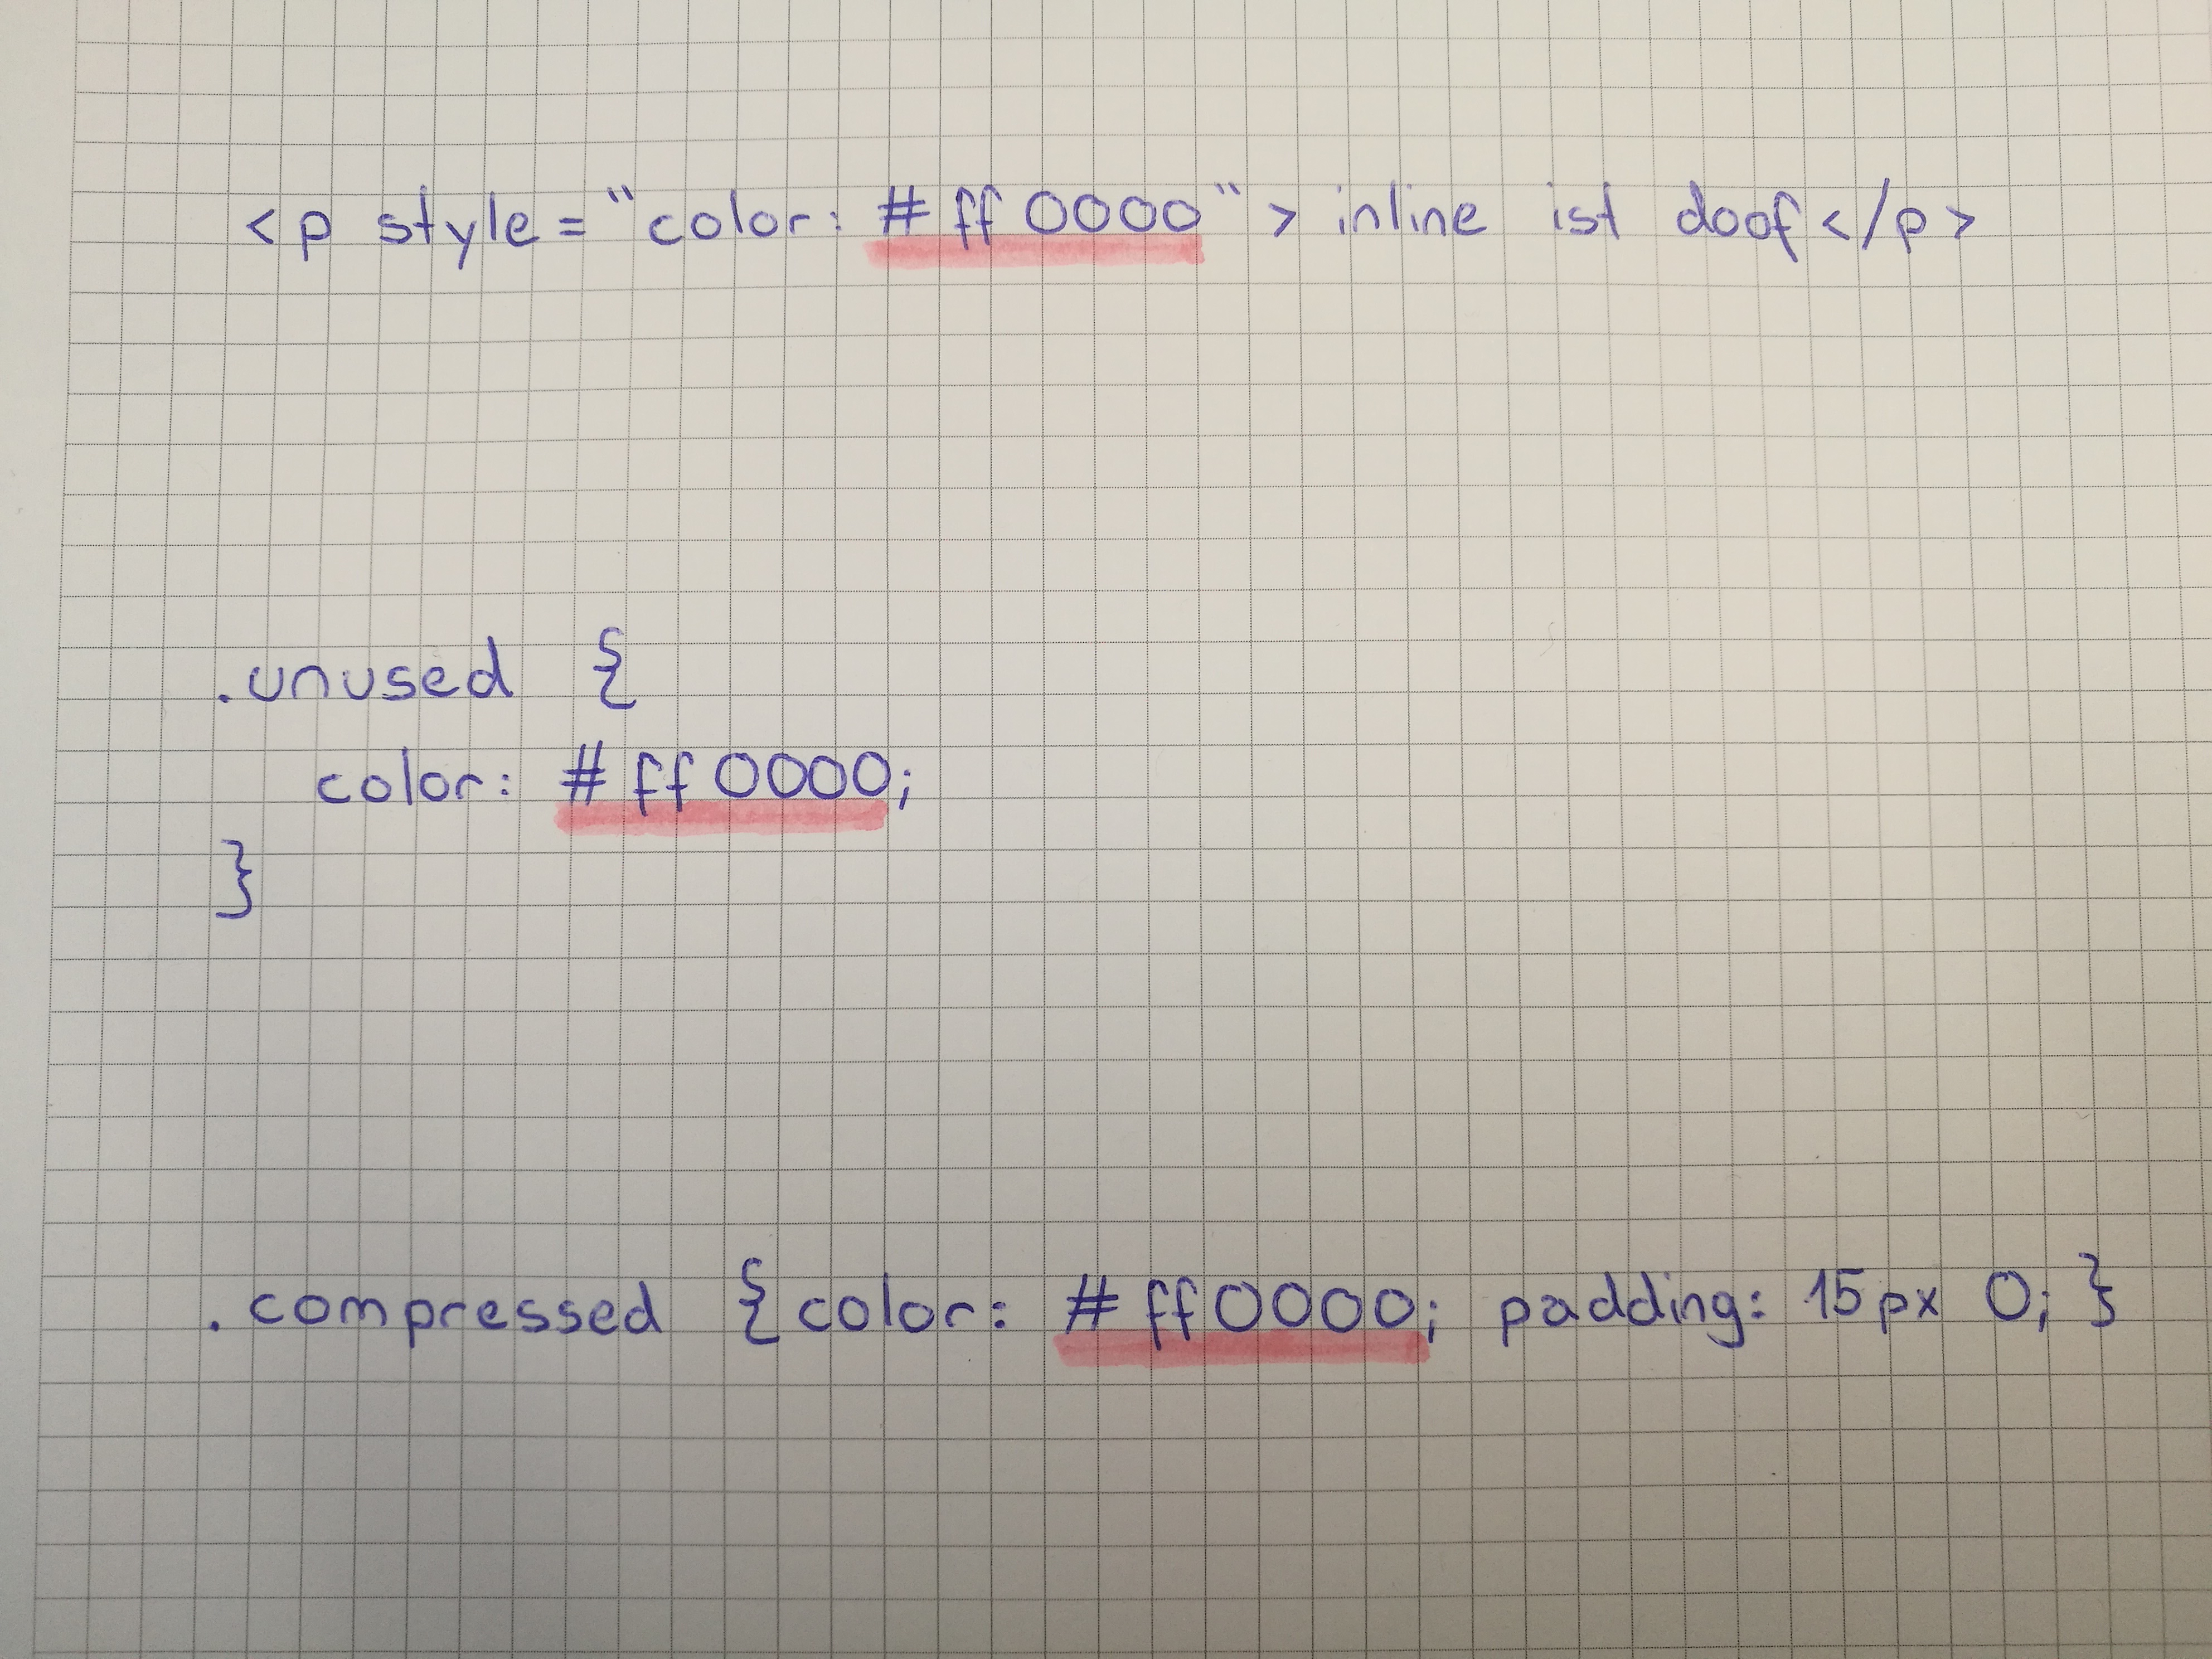 <p style="color: #ff0000">inline ist doof</p>
.unused {
color: #ff0000;
}
.compressed {color: #ff0000; padding: 15px 0; }